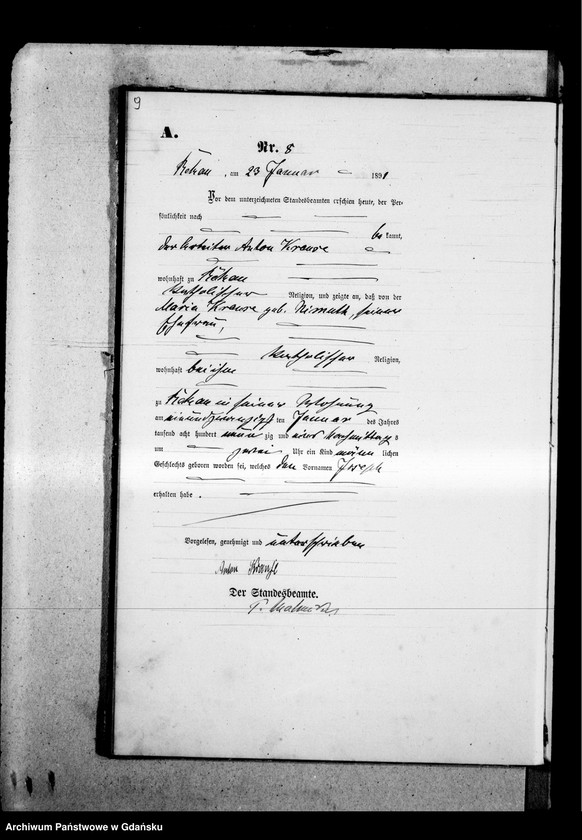 9
A.
Nr. 8
, am 23 Januar 1891
Vor dem unterzeichneten Standesbeamten erschien heute, der Per-
sönlichkeit nach
be kannt,
der Arbeiter Anton Krause
wohnhaft zu
katholischer Religion, und zeigte an, daß von der
Maria Krause geb. , seiner
Ehefrau,
katholischer Religion,
wohnhaft bei ihm
zu in seiner Wohnung
am einundzwanzigsten Januar des Jahres
tausend acht hundert neun zig und eins Nachmittag s
um zwei Uhr ein Kind männ lichen
Geschlechts geboren worden sei, welches den Vornamen Joseph
erhalten habe.
Vorgelesen, genehmigt und unterschrieben
Anton
Der Standesbeamte.
Archiwum Państwowe w Gdańsku